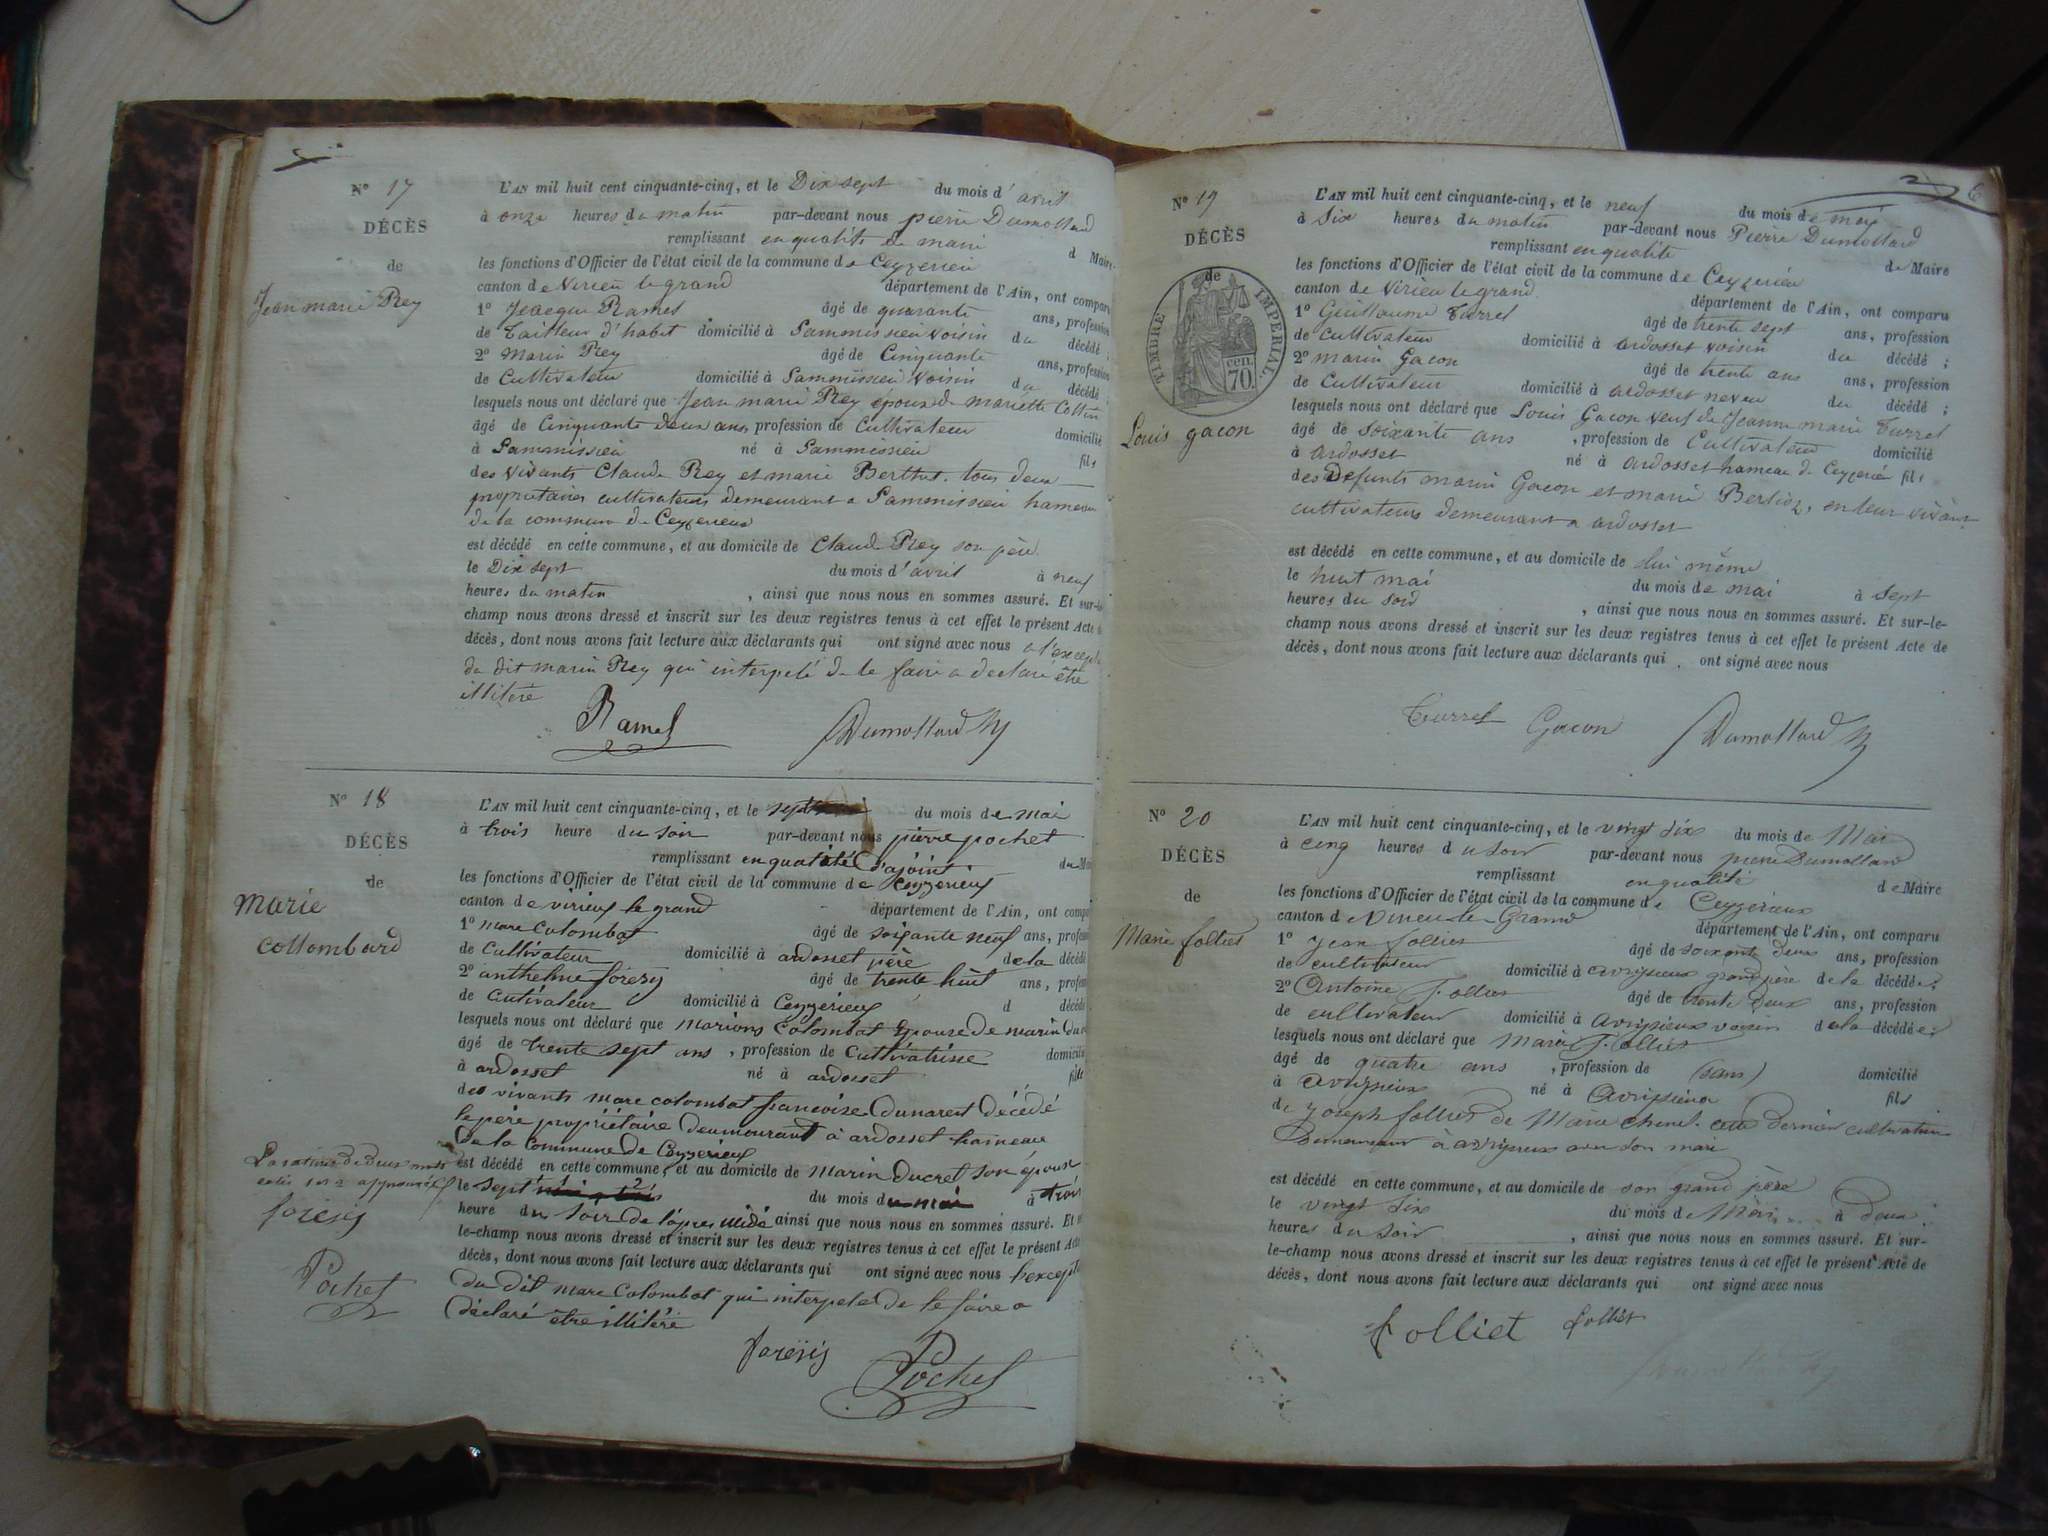 N° 17
DÉCÈS
de
Jean marie Rey
L'AN mil huit cent cinquante-cinq, et le Dix sept du mois d'avril
à onze heures du matin par-devant nous pierre Dumollard
remplissant en qualité de maire d Maire
les fonctions d'Officier de l'état civil de la commune de Ceyzerieu
canton de Virieu le grand département de l'Ain, ont comparu
1° Jeacque Ramel âgé de quarante ans, profession
de Tailleur d'habit domicilié à Sammissieu voisin du décédé ;
2° Marin Rey âgé de Cinquante ans, profession
de Cultivateur domicilié à Sammissieu voisin du décédé
lesquels nous ont déclaré que Jean marie Rey epoux de mariette Collin
âgé de Cinquante deux ans, profession de Cultivateur domicilié
à Sammissieu né à Sammissieu fils
des vivants Claude Rey et marie Berthet. tous deux
propriétaires cultivateurs demeurant a Sammissieu hameau
de la commune de Ceyzerieux
est décédé en cette commune, et au domicile de Claude Rey son père
le Dix sept du mois d'avril à neuf
heures du matin , ainsi que nous nous en sommes assuré. Et sur-le-
champ nous avons dressé et inscrit sur les deux registres tenus à cet effet le présent Acte de
décès, dont nous avons fait lecture aux déclarants qui ont signé avec nous a l'excepti
du dit marin Rey qui interpelé de le faire a déclaré être
illitéré
Ramel Dumollard
N° 18
DÉCÈS
de
Marie
collombard
L'AN mil huit cent cinquante-cinq, et le sept du mois de mai
à trois heure du soir par-devant nous pierre pochet
remplissant en qualité d'ajoint du Mai
les fonctions d'Officier de l'état civil de la commune de Ceyzerieux
canton de virieux le grand département de l'Ain, ont compa
1° marc Colombat âgé de soixante neuf ans, profess
de Cultivateur domicilié à ardosset père de la décédé
2° anthelme forezy âgé de trente huit ans, profess
de Cutivateur domicilié à Ceyzerieux d décédé
lesquels nous ont déclaré que Marion Colombat Epouse de marin Du
âgé de trente sept ans , profession de Cultivatrisse domicilié
à ardosset né à ardosset fille
des vivants marc colombat françoise Dunarest Décédé
le père propriétaire deumourant à ardosset hameau
de la Commune de Ceyzerieux
est décédé en cette commune, et au domicile de Marin Ducret son épouse
le sept du mois du mai à trois
heure du soir de l'apres midi ainsi que nous nous en sommes assuré. Et
le-champ nous avons dressé et inscrit sur les deux registres tenus à cet effet le présent Acte
décès, dont nous avons fait lecture aux déclarants qui ont signé avec nous l'excepti
du dit marc Colombat qui interpelé de le faire a
déclaré être illitéré
La rature de Deux mots
forezis
Pochet
forezis
Pochet
N° 19
DÉCÈS
de
TIMBRE IMPERIAL.
cen. 70.
Louis gacon
L'AN mil huit cent cinquante-cinq, et le neuf du mois de mai
à Six heures du matin par-devant nous Pierre Dumollard
remplissant en qualité de Maire
les fonctions d'Officier de l'état civil de la commune de Ceyzerieu
canton de Virieu le grand département de l'Ain, ont comparu
1° Guillaume Turrel âgé de trente sept ans, profession
de Cultivateur domicilié à ardosset voisin du décédé ;
2° marin Gacon âgé de trente ans ans, profession
de Cultivateur domicilié à ardosset neveu du décédé ;
lesquels nous ont déclaré que Louis Gacon veuf de Jeanne marie Turrel
âgé de soixante ans , profession de Cultivateur domicilié
à ardosset né à ardosset hameau de Ceyzerieu fils
des Defunts marin Gacon et marie Berlioz, en leur vivant
cultivateurs demeurant a ardosset
est décédé en cette commune, et au domicile de lui même
le huit mai du mois de mai à sept
heures du soir , ainsi que nous nous en sommes assuré. Et sur-le-
champ nous avons dressé et inscrit sur les deux registres tenus à cet effet le présent Acte de
décès, dont nous avons fait lecture aux déclarants qui . ont signé avec nous
Turrel Gacon Dumollard
N° 20
DÉCÈS
de
Marie folliet
L'AN mil huit cent cinquante-cinq, et le vingt six du mois de Mai
à cinq heures du soir par-devant nous pierre Dumollard
remplissant en qualité de Maire
les fonctions d'Officier de l'état civil de la commune de Ceyzerieux
canton de Virieu le Grand département de l'Ain, ont comparu
1° Jean folliet âgé de soixante deux ans, profession
de cultivateur domicilié à avrissieux grand père de la décédée ;
2° Antoine folliet âgé de trente deux ans, profession
de cultivateur domicilié à avrissieux voisin de la décédée ;
lesquels nous ont déclaré que Marie folliet
âgé de quatre ans , profession de (sans) domicilié
à avrissieux né à Avrissieux fils
de joseph folliet de Marie chenel. cette dernier cultivatrice
Demeurant à avrissieux avec son mari
est décédé en cette commune, et au domicile de son grand père
le vingt Six du mois de Mai à deux
heures du soir , ainsi que nous nous en sommes assuré. Et sur-
le-champ nous avons dressé et inscrit sur les deux registres tenus à cet effet le présent Acte de
décès, dont nous avons fait lecture aux déclarants qui ont signé avec nous
folliet folliet